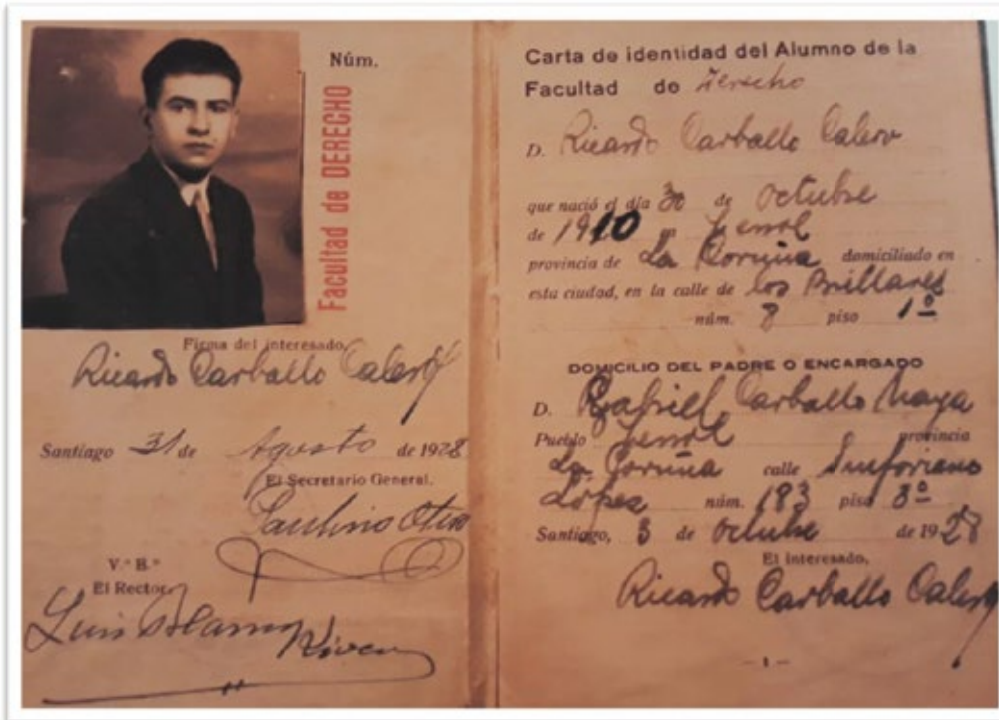 Núm.
Facultad de DERECHO
Firma del interesado,
Ricardo Carballo Calero
Santiago 31 de Agosto de 1928
El Secretario General.
Paulino Otero
V.º B.º
El Rector
Luis Blanco Rivero
Carta de identidad del Alumno de la
Facultad de Derecho
D. Ricardo Carballo Calero
que nació el día 30 de Octubre
de 1910 en Ferrol
provincia de La Coruña domiciliado en
esta ciudad, en la calle de los
núm. 8 piso 1º
DOMICILIO DEL PADRE O ENCARGADO
D. Gabriel Carballo
Pueblo Ferrol provincia
La Coruña calle Sinforiano
López núm. 183 piso
Santiago, 3 de Octubre de 1928
El interesado,
Ricardo Carballo Calero
- 1 -